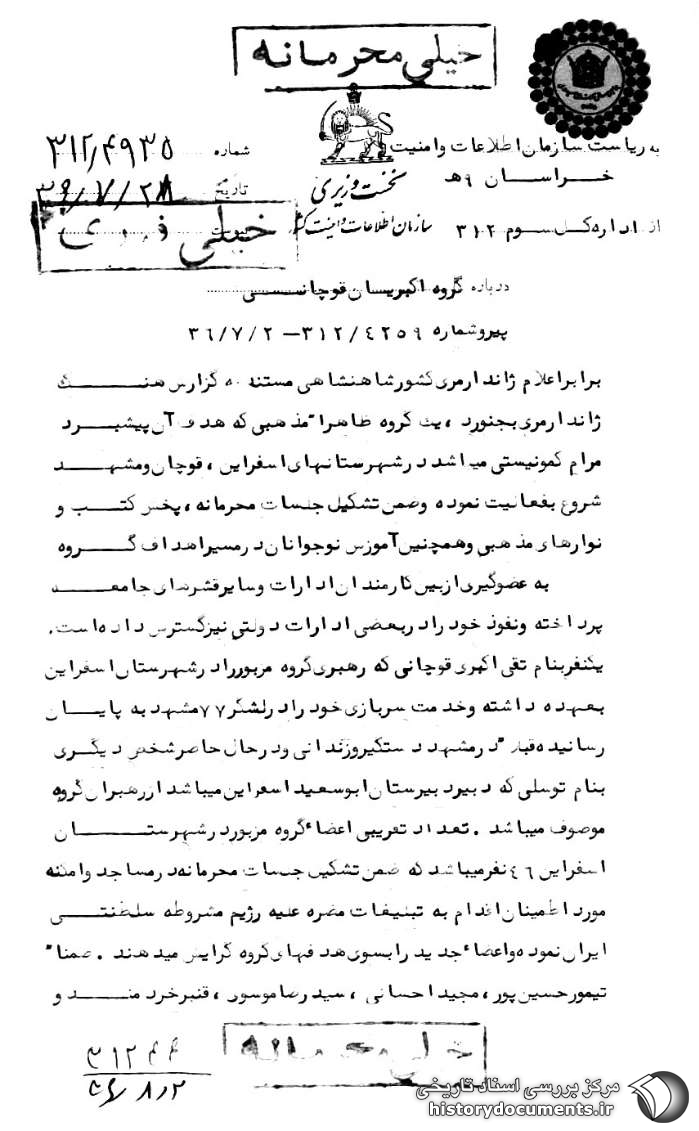 خیلی محرمانه
به ریاست سازمان اطلاعات وامنیت
خراسان ۹هـ
شماره ۳۱۲/۴۹۳۵
تاریخ ۳۶/۷/۲۸
نخست وزیری
سازمان اطلاعات و امنیت کشور
خیلی فوری
از اداره کل سوم ۳۱۲
درباره گروه اکبریسان قوچانسی
پیروشماره ۳۱۲/۴۲۵۹ – ۳۶/۷/۲
برابراعلام ژاندارمری کشورشاهنشاهی مستند به گزارش هنگ
ژاندارمری بجنورد ، یک گروه ظاهرا" مذهبی که هدف آن پیشبرد
مرام کمونیستی میباشد درشهرستانهای اسفراین ، قوچان ومشهد
شروع بفعالیت نموده وضمن تشکیل جلسات محرمانه ، پخش کتب و
نوارهای مذهبی وهمچنین آموزش نوجوانان درمسیراهداف گروه
به عضوگیری ازبین کارمندان ادارات وسایرقشرهای جامعه
پرداخته ونفوذ خود رادربعضی ادارات دولتی نیزگسترش داده است.
یکنفربنام تقی اکبری قوچانی که رهبری گروه مزبوررادرشهرستان اسفراین
بعهده داشته وخدمت سربازی خود رادرلشگر ۷۷ مشهد به پایان
رسانیده قبلا" درمشهد دستگیروزندانی ودرحال حاضرشخص دیگری
بنام توسلی که دبیردبیرستان ابوسعید اسفراین میباشد ازرهبران گروه
موصوف میباشد . تعداد تقریبی اعضاء گروه مزبوردرشهرستان
اسفراین ۴۶ نفرمیباشد که ضمن تشکیل جلسات محرمانه درمساجد وامکنه
مورداطمینان اقدام به تبلیغات مضره علیه رژیم مشروطه سلطنتی
ایران نموده واعضاء جدید رابسوی هدفهای گروه گرایش میدهند . ضمنا"
تیمورحسین پور ، مجید احسانی ، سیدرضاموسوی ، قنبرخردمند و
خیلی محرمانه
۳۱۲۴۴
۳۶/۸/۲
مرکز بررسی اسناد تاریخی
historydocuments.ir